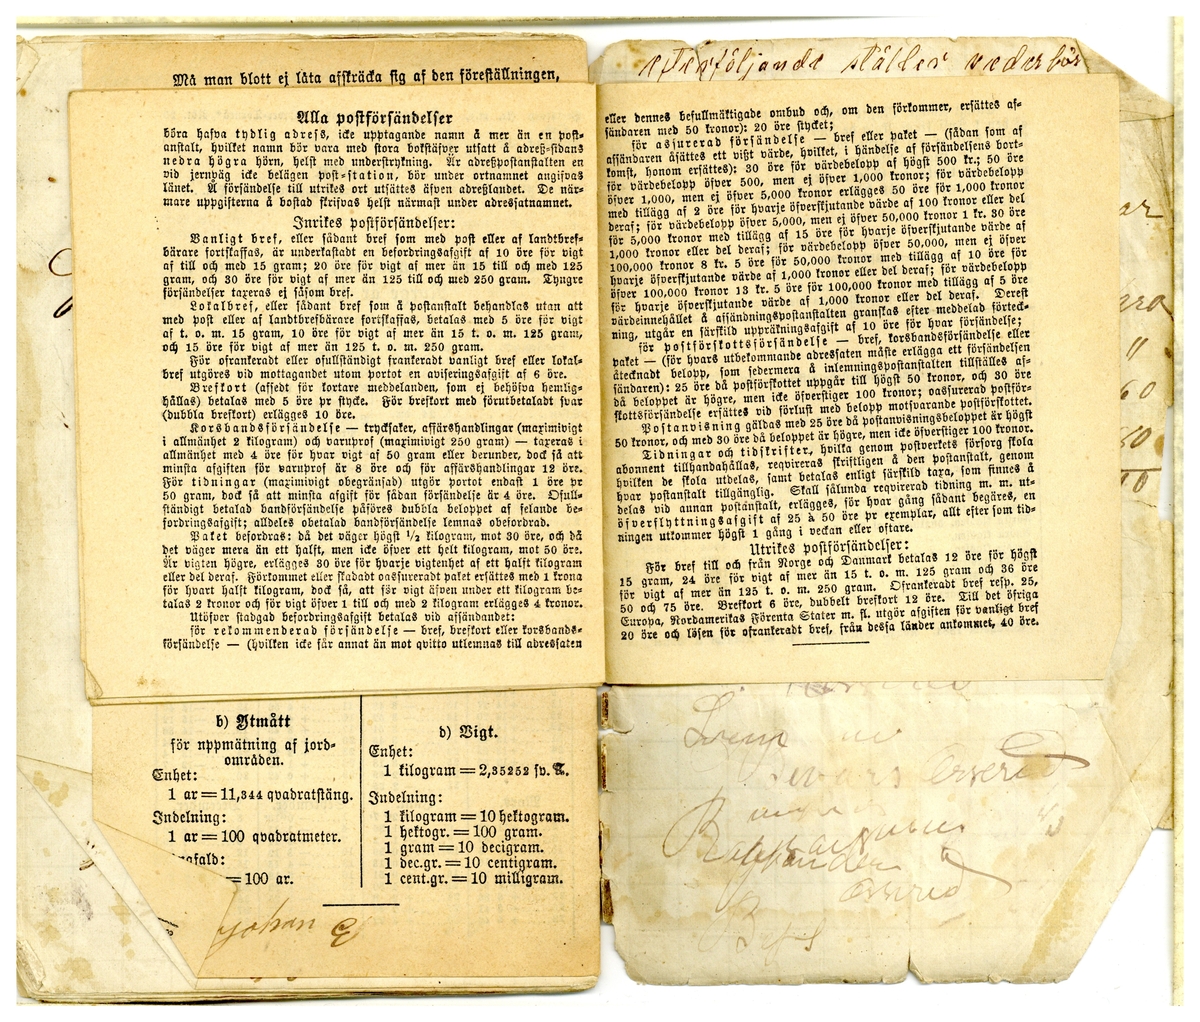 Må man blott ej låta affkräcka sig af den föreställningen,
efterföljande ställes vederbör
Alla postförsändelser
böra hafva tydlig adress, icke upptagande namn å mer än en post-
anstalt, hvilket namn bör vara med stora bokstäfver utsatt å adreß-sidans
nedra högra hörn, helst med understrykning. Är adreßpostanstalten en
vid jernväg icke belägen post-station, bör under ortnamnet angifvas
länet. Å försändelse till utrikes ort utsättes äfven adreßlandet. De när-
mare uppgifterna å bostad skrifvas helst närmast under adressatnamnet.
Inrikes postförsändelser:
Vanligt bref, eller sådant bref som med post eller af landtbref-
bärare fortskaffas, är underkastadt en befordringsafgift af 10 öre för vigt
af till och med 15 gram; 20 öre för vigt af mer än 15 till och med 125
gram, och 30 öre för vigt af mer än 125 till och med 250 gram. Tyngre
försändelser taxeras ej såsom bref.
Lokalbref, eller sådant bref som å postanstalt behandlas utan att
med post eller af landtbrefbärare fortskaffas, betalas med 5 öre för vigt
af t. o. m. 15 gram, 10 öre för vigt af mer än 15 t. o. m. 125 gram,
och 15 öre för vigt af mer än 125 t. o. m. 250 gram.
För ofrankeradt eller ofullständigt frankeradt vanligt bref eller lokal-
bref utgöres vid mottagandet utom portot en aviseringsafgift af 6 öre.
Brefkort (afsedt för kortare meddelanden, som ej behöfva hemlig-
hållas) betalas med 5 öre pr stycke. För brefkort med förutbetaladt svar
(dubbla brefkort) erlägges 10 öre.
Korsbandsförsändelse — trycksaker, affärshandlingar (maximivigt
i allmänhet 2 kilogram) och varuprof (maximivigt 250 gram) — taxeras i
allmänhet med 4 öre för hvar vigt af 50 gram eller derunder, dock så att
minsta afgiften för varuprof är 8 öre och för affärshandlingar 12 öre.
För tidningar (maximivigt obegränsad) utgör portot endast 1 öre pr
50 gram, dock så att minsta afgift för sådan försändelse är 4 öre. Ofull-
ständigt betalad bandförsändelse påföres dubbla beloppet af felande be-
fordringsafgift; alldeles obetalad bandförsändelse lemnas obefordrad.
Paket befordras: då det väger högst 1/2 kilogram, mot 30 öre, och då
det väger mera än ett halft, men icke öfver ett helt kilogram, mot 50 öre.
Är vigten högre, erlägges 30 öre för hvarje vigtenhet af ett halft kilogram
eller del deraf. Förkommet eller skadadt oassureradt paket ersättes med 1 krona
för hvart halft kilogram, dock så, att för vigt äfven under ett kilogram be-
talas 2 kronor och för vigt öfver 1 till och med 2 kilogram erlägges 4 kronor.
Utöfver stadgad befordringsafgift betalas vid afsändandet:
för rekommenderad försändelse — bref, brefkort eller korsbands-
försändelse — (hvilken icke får annat än mot qvitto utlemnas till adressaten
eller dennes befullmäktigade ombud och, om den förkommer, ersättes af-
sändaren med 50 kronor): 20 öre stycket;
för assurerad försändelse — bref eller paket — (sådan som af
afsändaren åsättes ett visst värde, hvilket, i händelse af försändelsens bort-
komst, honom ersättes): 30 öre för värdebelopp af högst 500 kr.; 50 öre
för värdebelopp öfver 500, men ej öfver 1,000 kronor; för värdebelopp
öfver 1,000, men ej öfver 5,000 kronor erlägges 50 öre för 1,000 kronor
med tillägg af 2 öre för hvarje öfverskjutande värde af 100 kronor eller del
deraf; för värdebelopp öfver 5,000, men ej öfver 50,000 kronor 1 kr. 30 öre
för 5,000 kronor med tillägg af 15 öre för hvarje öfverskjutande värde af
1,000 kronor eller del deraf; för värdebelopp öfver 50,000, men ej öfver
100,000 kronor 8 kr. 5 öre för 50,000 kronor med tillägg af 10 öre för
hvarje öfverskjutande värde af 1,000 kronor eller del deraf; för värdebelopp
öfver 100,000 kronor 13 kr. 5 öre för 100,000 kronor med tillägg af 5 öre
för hvarje öfverskjutande värde af 1,000 kronor eller del deraf. Derest
värdeinnehållet å afsändningspostanstalten granskas efter meddelad förteck-
ning, utgår en särskild uppräkningsafgift af 10 öre för hvar försändelse;
för postförskottsförsändelse — bref, korsbandsförsändelse eller
paket — (för hvars utbekommande adressaten måste erlägga ett försändelsen
åtecknadt belopp, som sedermera å inlemningspostanstalten tillställes af-
sändaren): 25 öre då postförskottet uppgår till högst 50 kronor, och 30 öre
då beloppet är högre, men icke öfverstiger 100 kronor; oassurerad postför-
skottsförsändelse ersättes vid förlust med belopp motsvarande postförskottet.
Postanvisning gäldas med 25 öre då postanvisningsbeloppet är högst
50 kronor, och med 30 öre då beloppet är högre, men icke öfverstiger 100 kronor.
Tidningar och tidskrifter, hvilka genom postverkets försorg skola
abonnent tillhandahållas, requireras skriftligen å den postanstalt, genom
hvilken de skola utdelas, samt betalas enligt särskild taxa, som finnes å
hvar postanstalt tillgänglig. Skall sålunda requirerad tidning m. m. ut-
delas vid annan postanstalt, erlägges, för hvar gång sådant begäres, en
öfverflyttningsafgift af 25 à 50 öre pr exemplar, allt efter som tid-
ningen utkommer högst 1 gång i veckan eller oftare.
Utrikes postförsändelser:
För bref till och från Norge och Danmark betalas 12 öre för högst
15 gram, 24 öre för vigt af mer än 15 t. o. m. 125 gram och 36 öre
för vigt af mer än 125 t. o. m. 250 gram. Ofrankeradt bref resp. 25,
50 och 75 öre. Brefkort 6 öre, dubbelt brefkort 12 öre. Till det öfriga
Europa, Nordamerikas Förenta Stater m. fl. utgör afgiften för vanligt bref
20 öre och lösen för ofrankeradt bref, från dessa länder ankommet, 40 öre.
b) Ytmått
för uppmätning af jord-
områden.
Enhet:
1 ar = 11,344 qvadratstäng.
Indelning:
1 ar = 100 qvadratmeter.
= 100 ar.
d) Vigt.
Enhet:
1 kilogram = 2,35252 sv. ℔.
Indelning:
1 kilogram = 10 hektogram.
1 hektogr. = 100 gram.
1 gram = 10 decigram.
1 dec.gr. = 10 centigram.
1 cent.gr. = 10 milligram.
Johan E